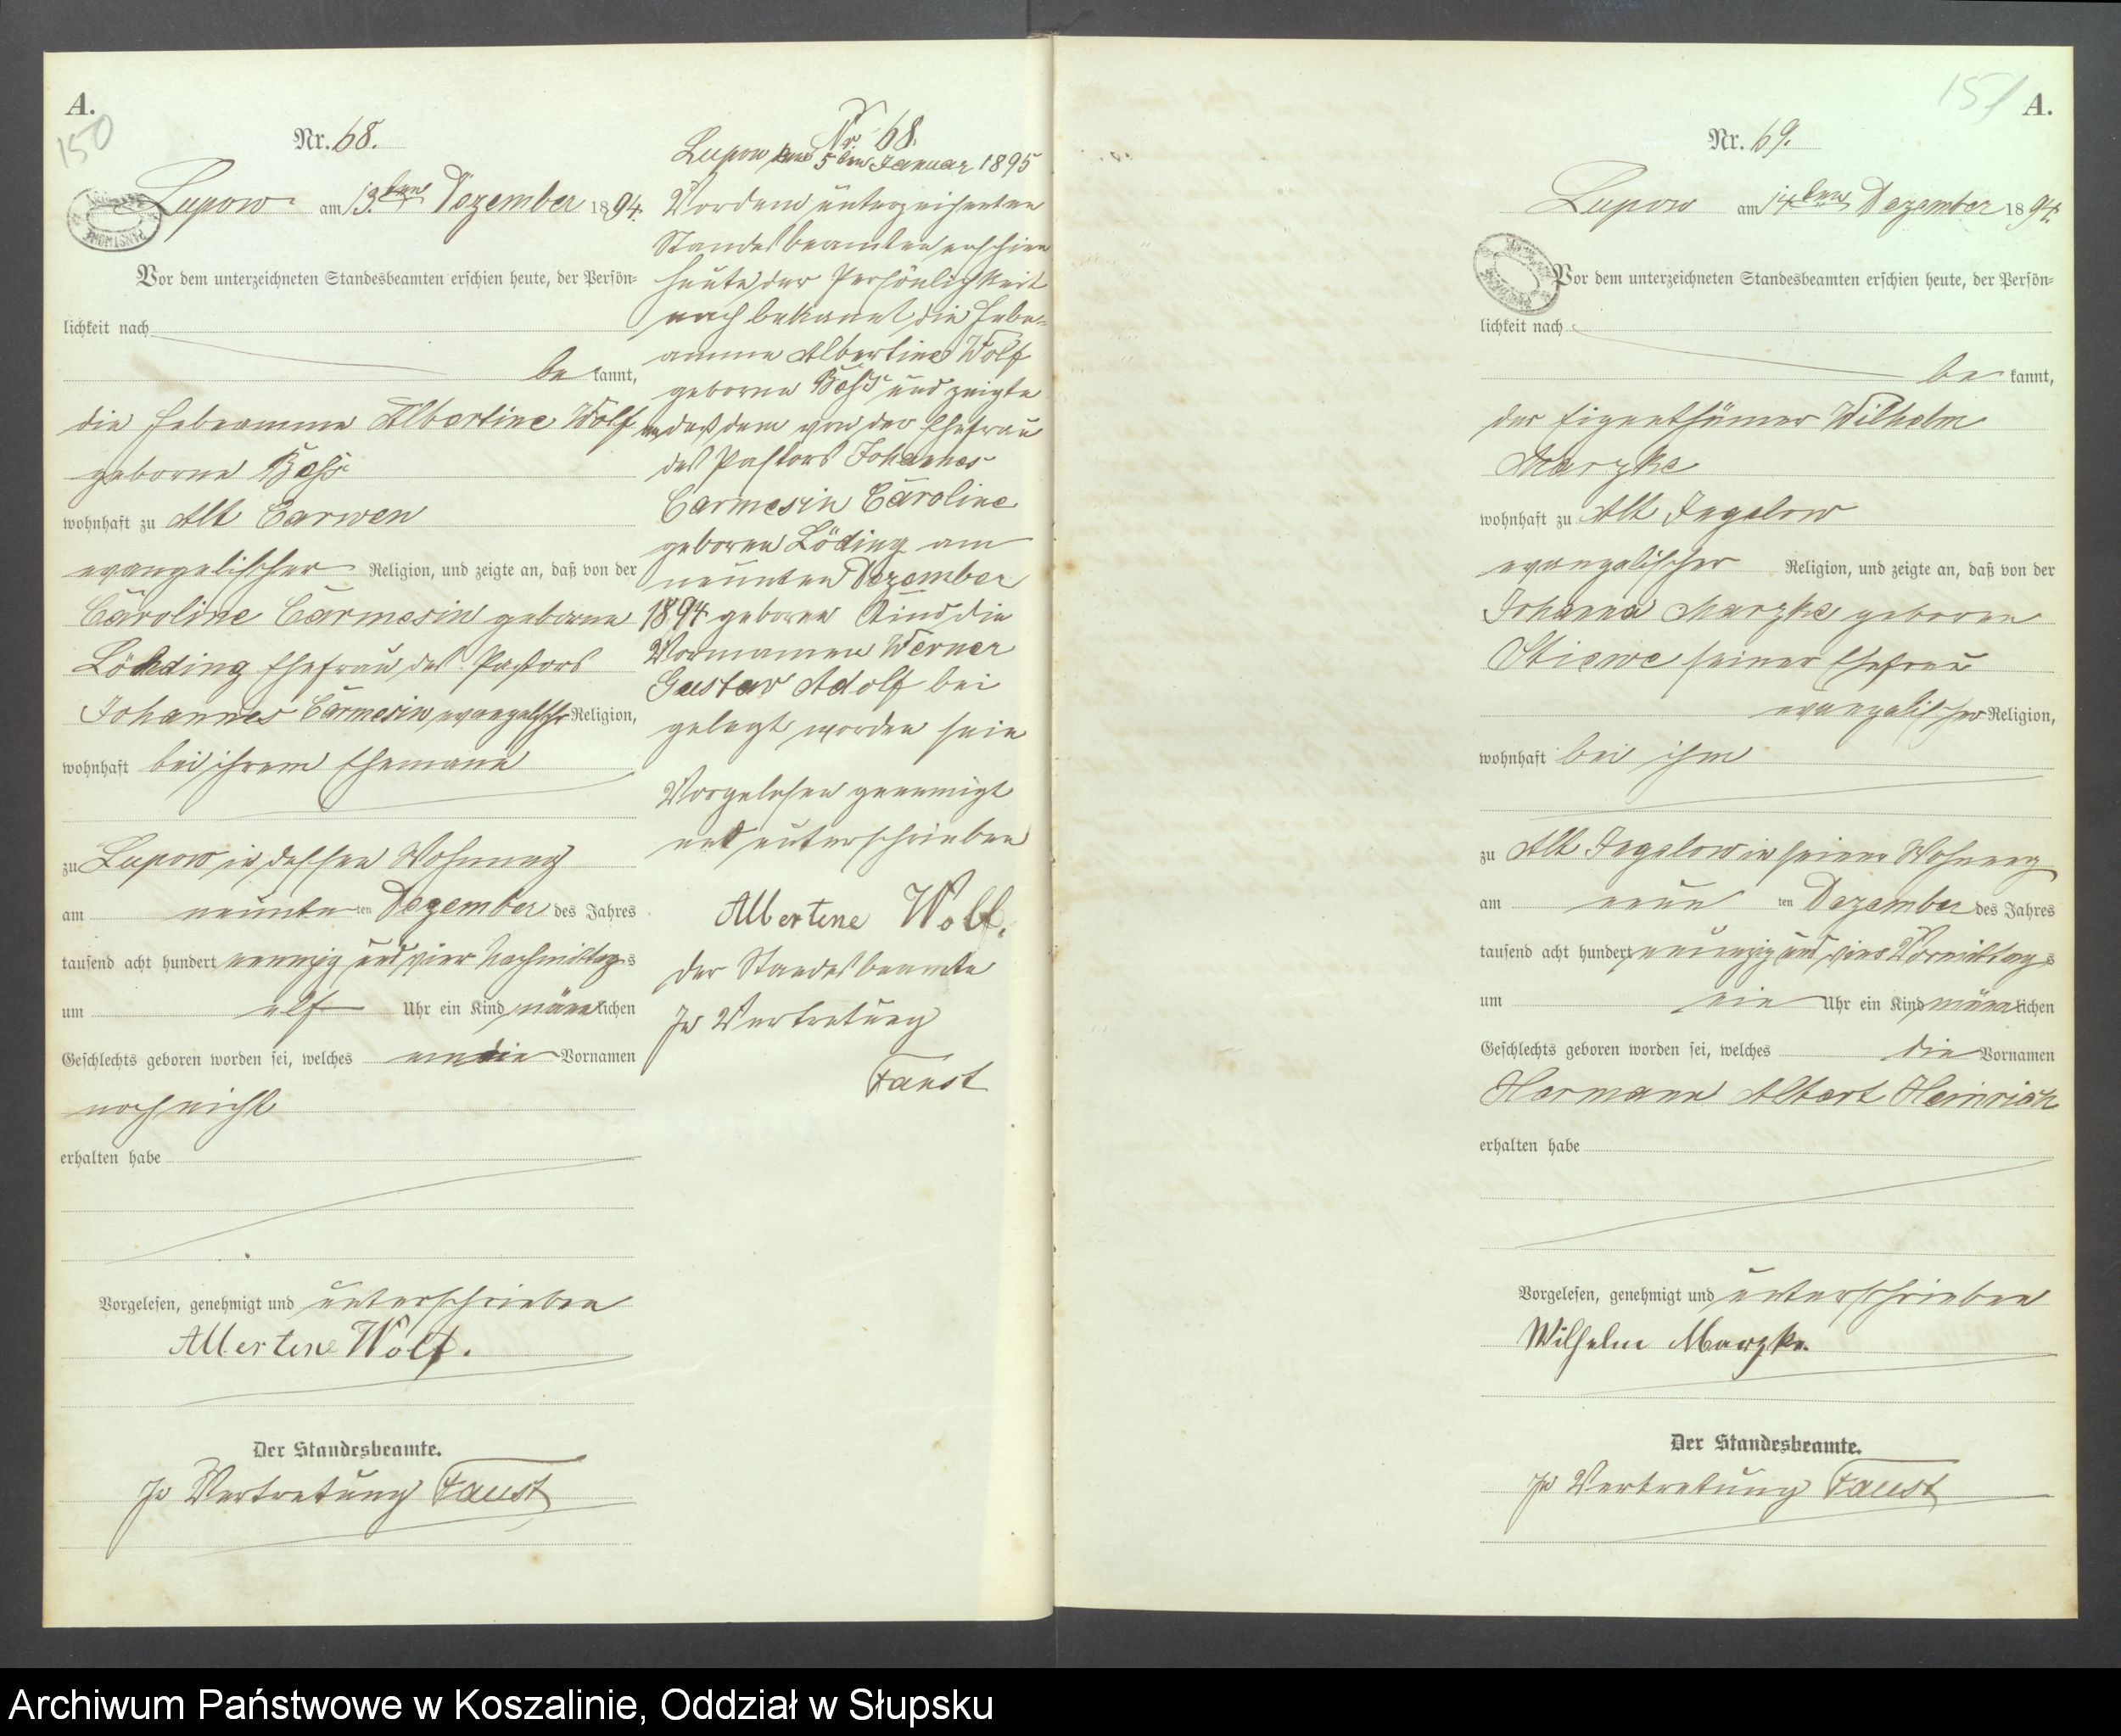 A.
150
Nr. 68.
Lupow am 13.ten Dezember 1894.
Vor dem unterzeichneten Standesbeamten erschien heute, der Persön-
lichkeit nach
be kannt,
die Hebeamme Albertine Wolf
geborne
wohnhaft zu Alt Carwen
evangelischer Religion, und zeigte an, daß von der
Caroline Carmesin geborne
Löhding Ehefrau des Pastors
Johannes Carmesin, evangelischer Religion,
wohnhaft bei ihrem Ehemann
zu Lupow in dessen Wohnung
am neunten ten Dezember des Jahres
tausend acht hundert neunzig und vier Nachmittags
um elf Uhr ein Kind männlichen
Geschlechts geboren worden sei, welches die Vornamen
noch nicht
erhalten habe
Vorgelesen, genehmigt und unterschrieben
Albertine Wolf.
Der Standesbeamte.
In Vertretung Faust
Nr. 68.
Lupow den 5ten Januar 1895
Vor dem unterzeichneten
Standesbeamten erschien
heute, der Persönlichkeit
nach bekannt, die Hebe-
amme Albertine Wolf
geborne und zeigte
an, daß dem von der Ehefrau
des Pastors Johannes
Carmesin Caroline
geborne Löding am
neunten Dezember
1894 geborne Kind die
Vornamen Werner
Gustav Adolf bei
gelegt worden sein
Vorgelesen genemigt
und unterschrieben
Albertene Wolf.
der Standesbeamte
In Vertretung
Faust
151
A.
Nr. 69.
Lupow am 14ten Dezember 1894.
Vor dem unterzeichneten Standesbeamten erschien heute, der Persön-
lichkeit nach
be kannt,
der Eigenthümer Wilhelm
Marzke
wohnhaft zu Alt Jugelow
evangelischer Religion, und zeigte an, daß von der
Johanna Marzke geboren
seiner Ehefrau
evangelischer Religion,
wohnhaft bei ihm
zu Alt Jugelow in seiner Wohnung
am neun ten Dezember des Jahres
tausend acht hundert neunzig und vier Vormittags
um ein Uhr ein Kind männlichen
Geschlechts geboren worden sei, welches die Vornamen
Hermann Albert Heinrich
erhalten habe
Vorgelesen, genehmigt und unterschrieben
Wilhelm Marzke.
Der Standesbeamte.
In Vertretung Faust
Archiwum Państwowe w Koszalinie, Oddział w Słupsku